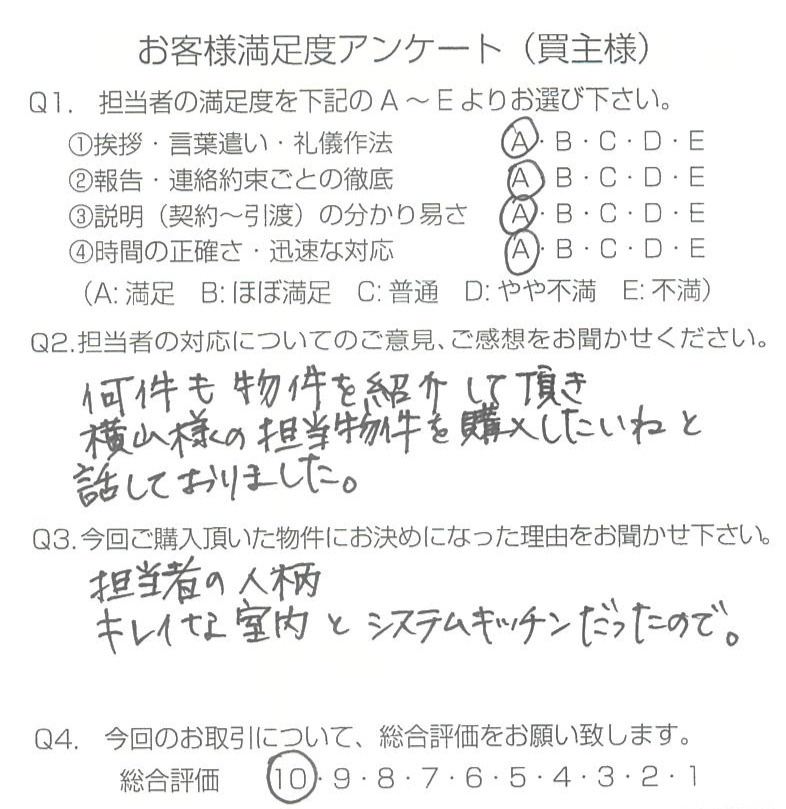 お客様満足度アンケート（買主様）
Q1. 担当者の満足度を下記のA～Eよりお選び下さい。
①挨拶・言葉遣い・礼儀作法 A・B・C・D・E
②報告・連絡約束ごとの徹底 A・B・C・D・E
③説明（契約～引渡）の分かり易さ A・B・C・D・E
④時間の正確さ・迅速な対応 A・B・C・D・E
（A:満足 B:ほぼ満足 C:普通 D:やや不満 E:不満）
Q2.担当者の対応についてのご意見、ご感想をお聞かせください。
何件も物件を紹介して頂き
横山様の担当物件を購入したいねと
話しておりました。
Q3.今回ご購入頂いた物件にお決めになった理由をお聞かせ下さい。
担当者の人柄
キレイな室内とシステムキッチンだったので。
Q4. 今回のお取引について、総合評価をお願い致します。
総合評価 10・9・8・7・6・5・4・3・2・1